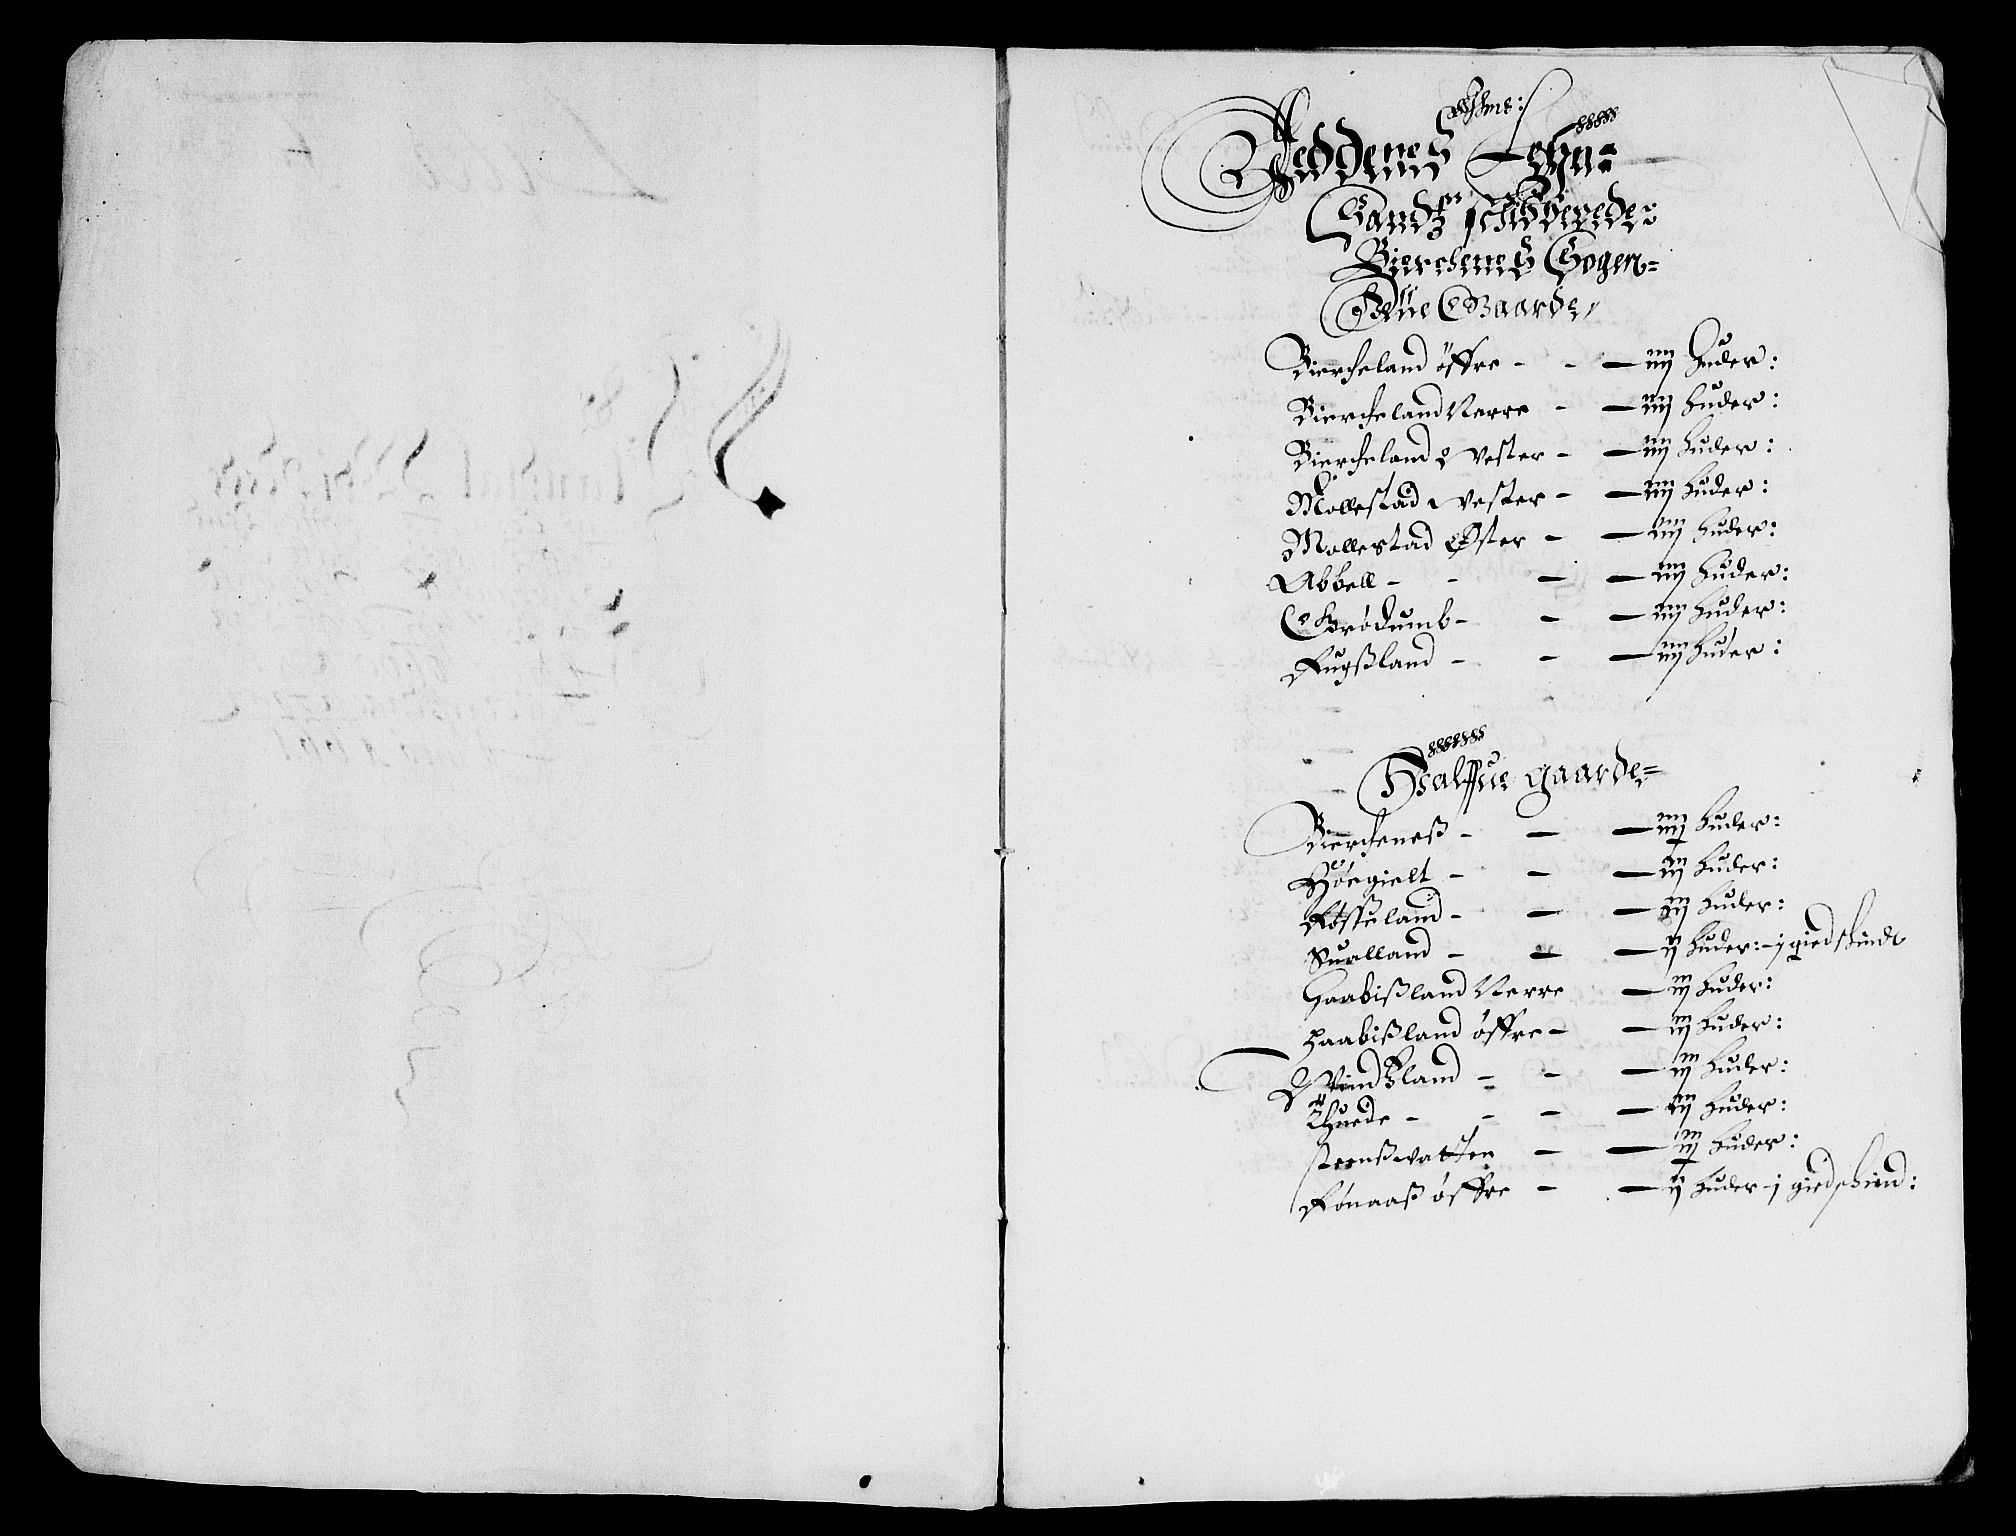 Neddenes Lehn
Sandz
Bierchenes Sogen
Fuue Gaarde
Biercheland öffre - - - iiij huder:
Bierchelandt Nerre - - iiij huder:
Biercheland vester - - iiij huder:
Mollestad vester - - iiij huder:
Mollestad Øster - - iiij huder:
Abbell - - - - iiij huder:
Grödumb - - - iiij huder:
Fugßland - - - iiij huder:
Halffue gaarde
Bierckeneß - - - huder:
Høegielt - - - iij huder:
Føsseland - - - iij huder:
Sualland - - - ij huder: - j giedskind
Haabißland Nerre - iij huder:
haabißland öffre - - iij huder:
Vindßland - - - iij huder:
Thuede - - - - iij huder:
steenßvatten - - iij huder:
Fönaaß öffre - - ij huder - j giedskind: